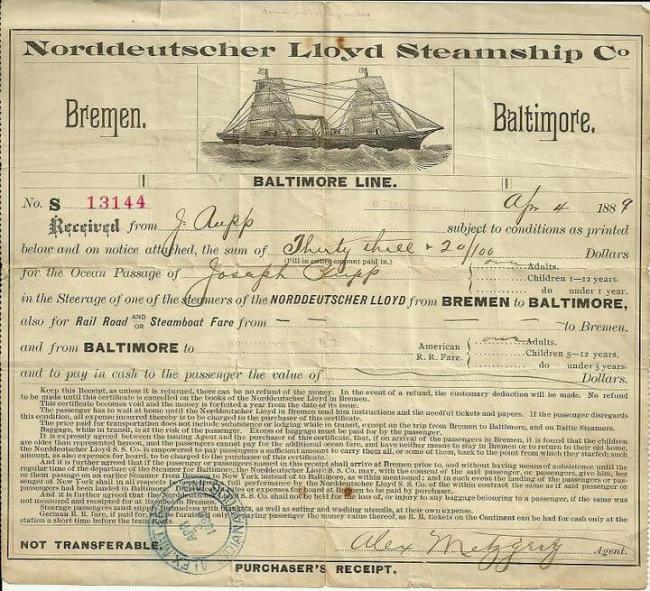 Norddeutscher Lloyd Steamship Co
Bremen.
Baltimore.
BALTIMORE LINE.
No. S 13144
Apr 4 1889
Received from J. Rupp subject to conditions as printed
below and on notice attached, the sum of Thirty three + 20/100 Dollars
(Fill in entire amount paid in.)
for the Ocean Passage of Joseph Rupp one Adults.
Children 1—12 years.
do under 1 year.
in the Steerage of one of the steamers of the NORDDEUTSCHER LLOYD from BREMEN to BALTIMORE,
also for Rail Road AND/OR Steamboat Fare from — — to Bremen.
and from BALTIMORE to American R. R. Fare. one Adults.
Children 5—12 years.
do under 5 years.
and to pay in cash to the passenger the value of Dollars.
Keep this Receipt, as unless it is returned, there can be no refund of the money. In the event of a refund, the customary deduction will be made. No refund
to be made until this certificate is cancelled on the books of the Norddeutscher Lloyd in Bremen.
This certificate becomes void and the money is forfeited a year from the date of its issue.
The passenger has to wait at home until the Norddeutscher Lloyd in Bremen send him instructions and the needful tickets and papers. If the passenger disregards
this condition, all expense incurred thereby is to be charged to the purchaser of this certificate.
The price paid for transportation does not include subsistence or lodging while in transit, except on the trip from Bremen to Baltimore, and on Baltic Steamers.
Baggage, while in transit, is at the risk of the passenger. Excess of baggage must be paid for by the passenger.
It is expressly agreed between the issuing Agent and the purchaser of this certificate, that, if on arrival of the passengers in Bremen, it is found that the children
are older than represented hereon, and the passengers cannot pay for the additional ocean fare, and have neither money to stay in Bremen or to return to their old home,
the Norddeutscher Lloyd S. S. Co. is empowered to pay passengers a sufficient amount to carry them all, or some of them, back to the point from which they started; such
amount, as also expenses for board, to be charged to the purchaser of this certificate.
And it is further agreed that if the passenger or passengers named in this receipt shall arrive at Bremen prior to, and without having means of subsistence until the
regular time of the departure of the Steamer for Baltimore, the Norddeutscher Lloyd S. S. Co. may, with the consent of the said passenger, or passengers, give him, her
or them passage on any other Steamer of the Line to New York instead of to Baltimore, as within mentioned; and in such event the landing of the passengers or pas-
senger at New York shall in all respects be
passengers had been landed in Baltimore.
And it is further agreed that the Norddeutscher Lloyd S. S. Co. shall not be held for the loss of, or injury to any baggage belonging to a passenger, if the same was
not measured and receipted for at its depot in Bremen.
Steerage passengers must supply themselves with as well as eating and washing utensils, at their own expense.
German R. R. fare, if paid for, can be furnished only by paying passenger the money value thereof, as R. R. tickets on the Continent can be had for cash only at the
station a short time before the train starts.
NOT TRANSFERABLE.
Agent.
PURCHASER'S RECEIPT.